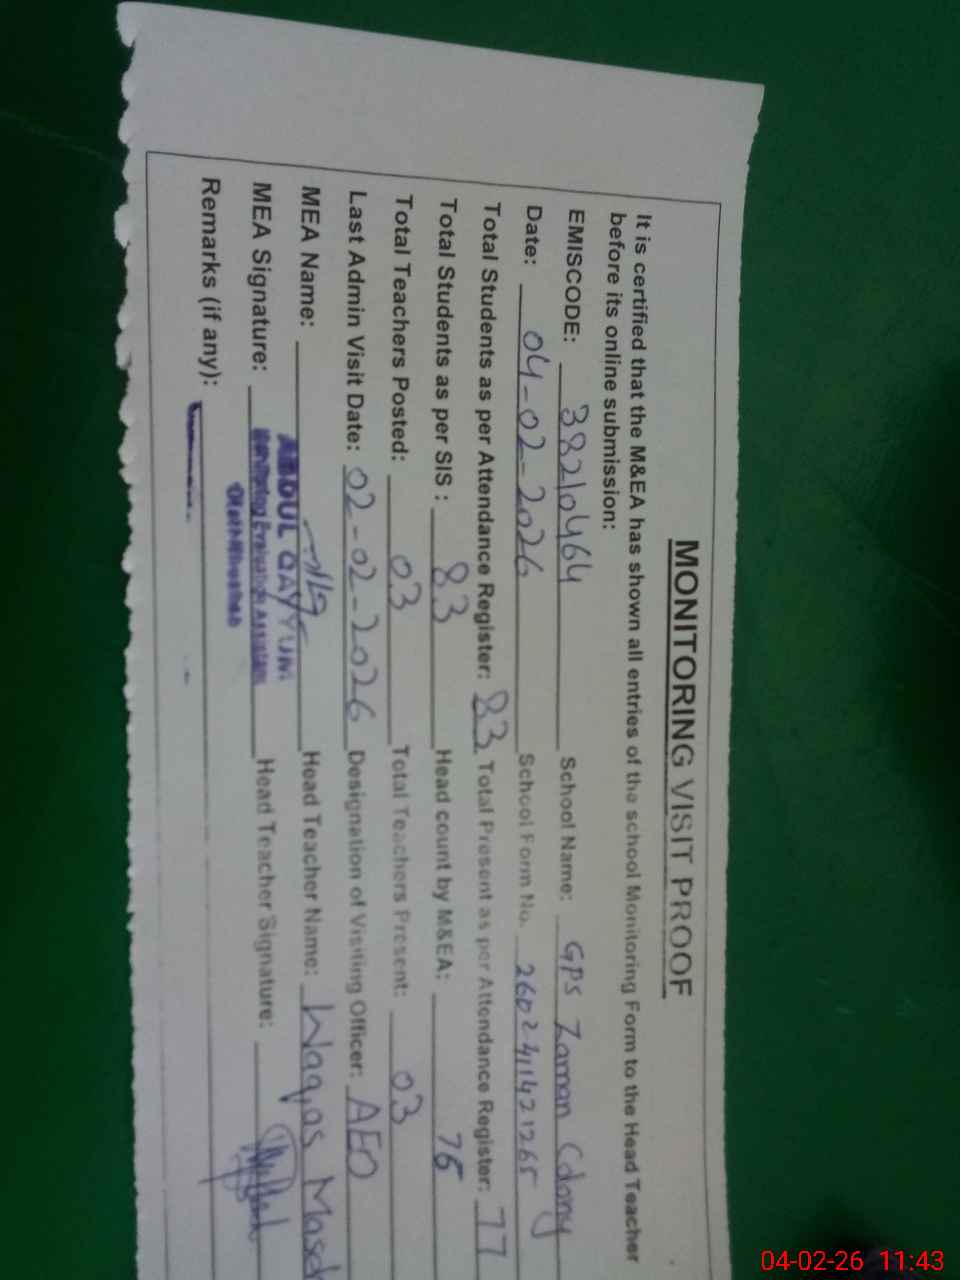 MONITORING VISIT PROOF
It is certified that the M&EA has shown all entries of the school Monitoring Form to the Head Teacher
before its online submission:
EMISCODE: 38210464 School Name: GPS Zaman Colony
Date: 04-02-2026 School Form No. 260241421265
Total Students as per Attendance Register: 83 Total Present as per Attendance Register: 77
Total Students as per SIS : 83 Head count by M&EA: 76
Total Teachers Posted: 03 Total Teachers Present: 03
Last Admin Visit Date: 02-02-2026 Designation of Visiting Officer: AEO
MEA Name: Head Teacher Name: Waqas
ABDUL QAYYUM
MEA Signature: Monitoring Evaluation Assistant Head Teacher Signature:
Remarks (if any):
04-02-26 11:43